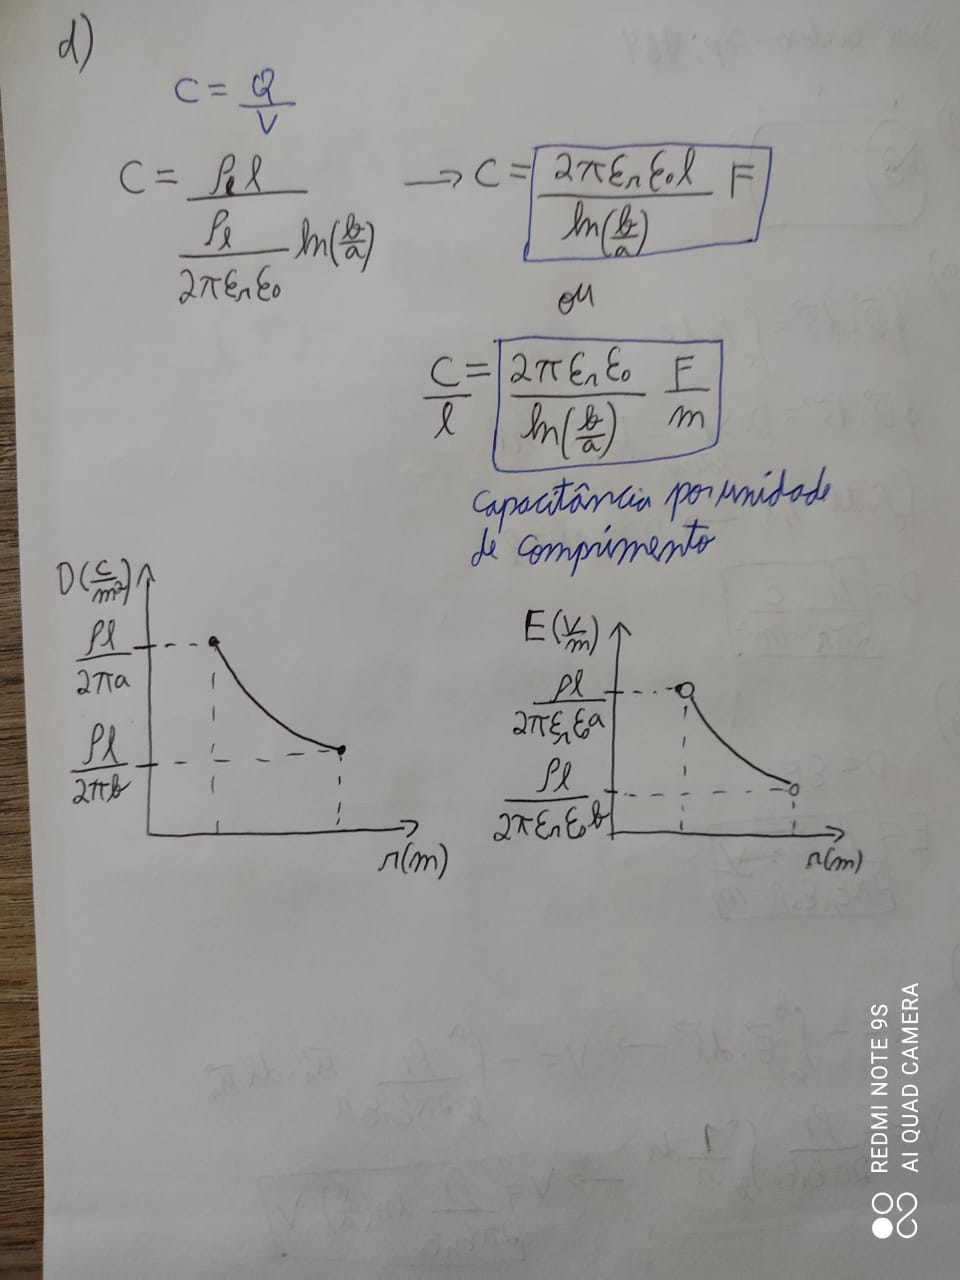 d)
C = Q/V
C = ρℓ l / (ρℓ/(2πεrε0) ln(b/a)) → C = 2πεrε0l / ln(b/a) F
ou
C/l = 2πεrε0 / ln(b/a) F/m
Capacitância por unidade
de comprimento
D(C/m²)
ρℓ/2πa
ρℓ/2πb
r(m)
E(V/m)
ρℓ/2πεrε0a
ρℓ/2πεrε0b
r(m)
REDMI NOTE 9S
AI QUAD CAMERA